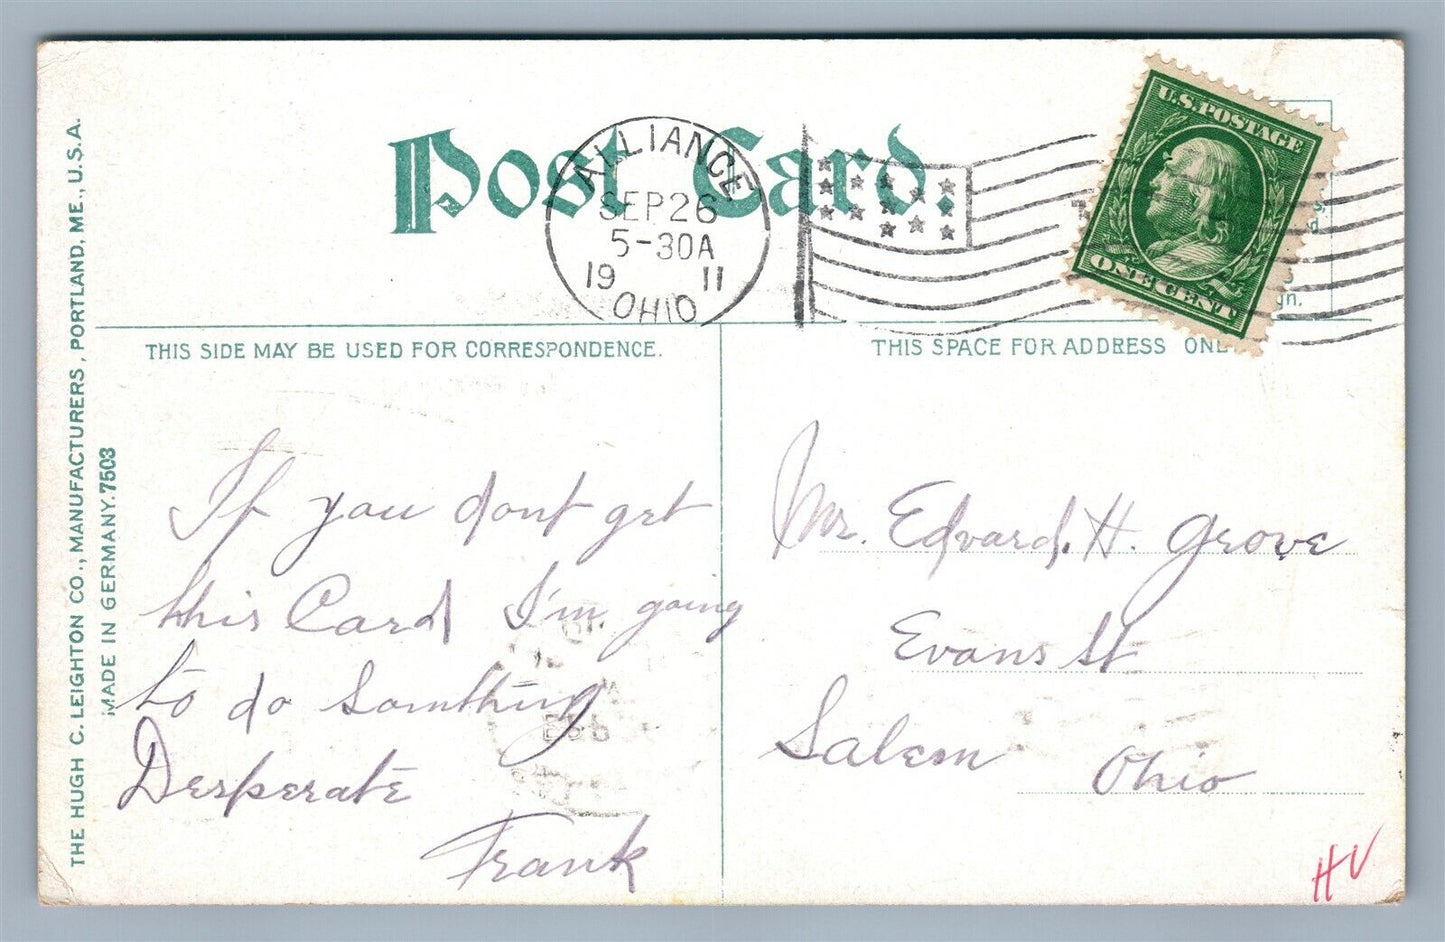 Post Card.
ALLIANCE
SEP 26
5-30A
19 11
OHIO
U.S. POSTAGE
ONE CENT
gn.
THIS SIDE MAY BE USED FOR CORRESPONDENCE.
THIS SPACE FOR ADDRESS ONL
THE HUGH C. LEIGHTON CO., MANUFACTURERS, PORTLAND, ME., U.S.A.
MADE IN GERMANY. 7503
If you dont get
this Card I'm going
to do Somthing
Desperate
Frank
Mr. Edward. H. Grove
Evans St
Salem
Ohio
HV